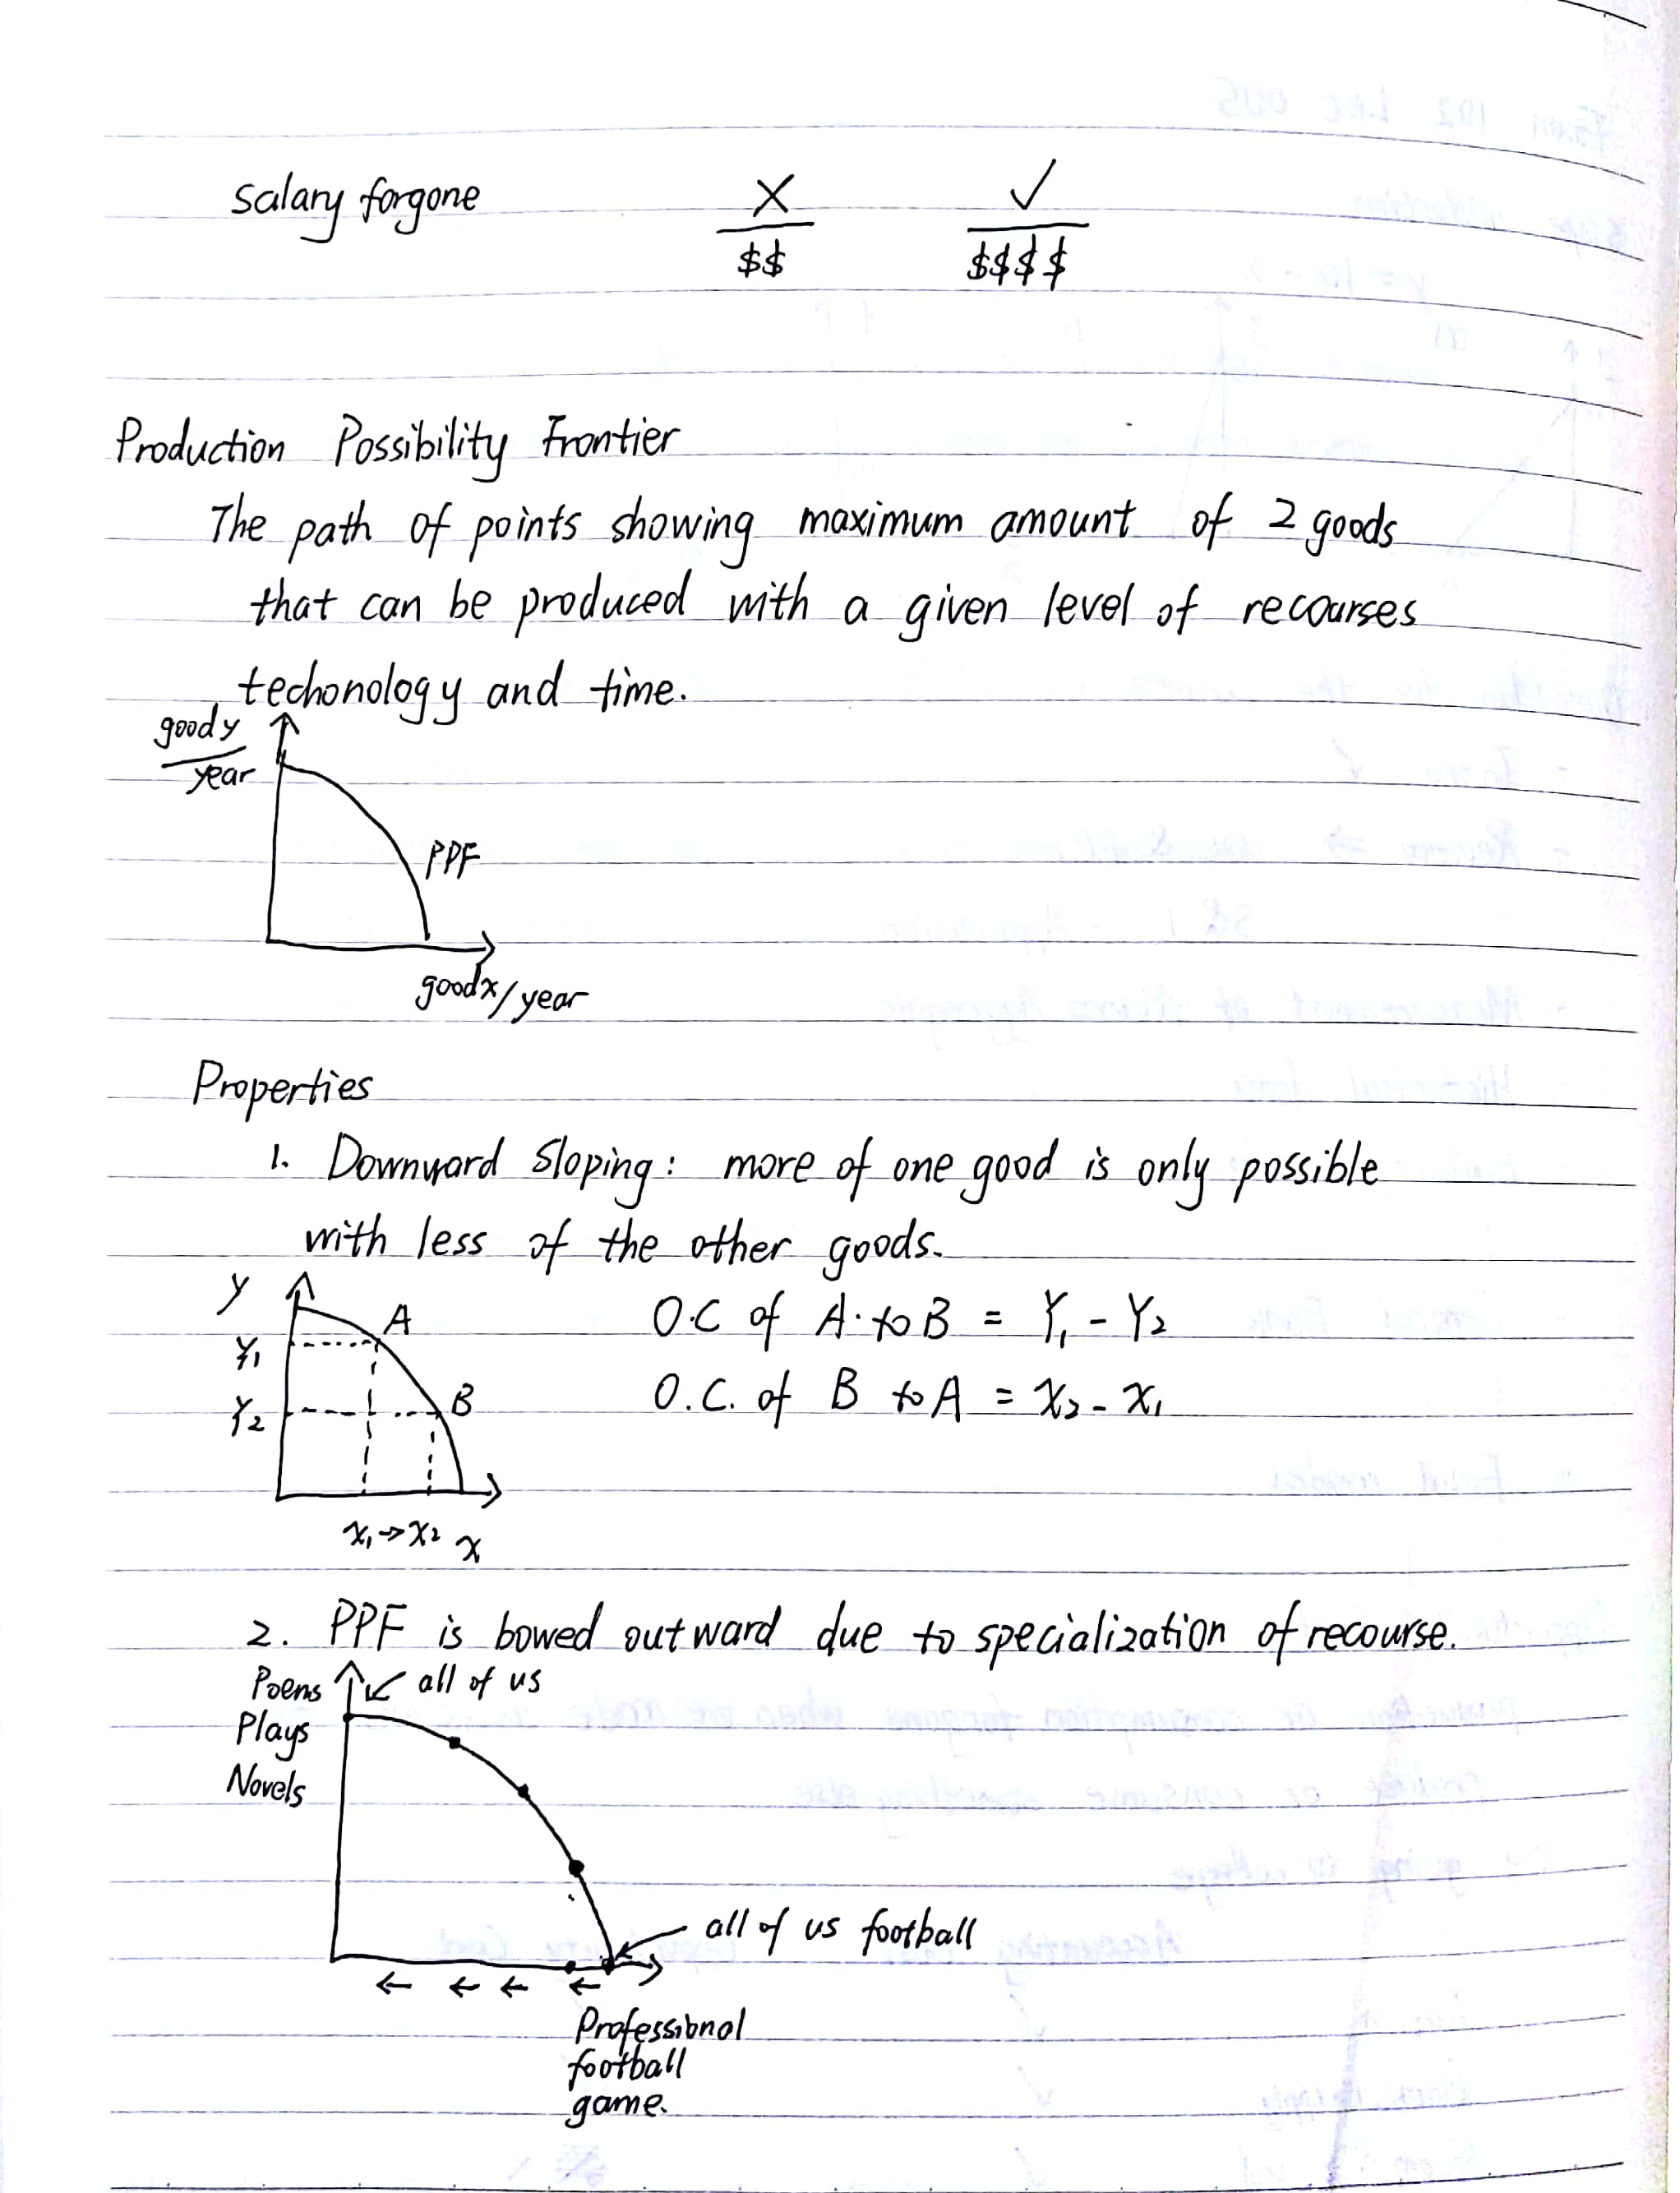 salary forgone X ✓
$$ $$$$
Production Possibility Frontier
The path of points showing maximum amount of 2 goods
that can be produced with a given level of recourses
techonology and time.
good y
year
PPF
good x/year
Properties
1. Downward Sloping: more of one good is only possible
with less of the other goods.
Y
A O.C of A to B = Y₁ - Y₂
Y₁
Y₂ B O.C. of B to A = X₂ - X₁
x₁→x₂ x
2. PPF is bowed outward due to specialization of recourse.
Poems all of us
Plays
Novels
all of us football
← ← ← ←
Professional
football
game.